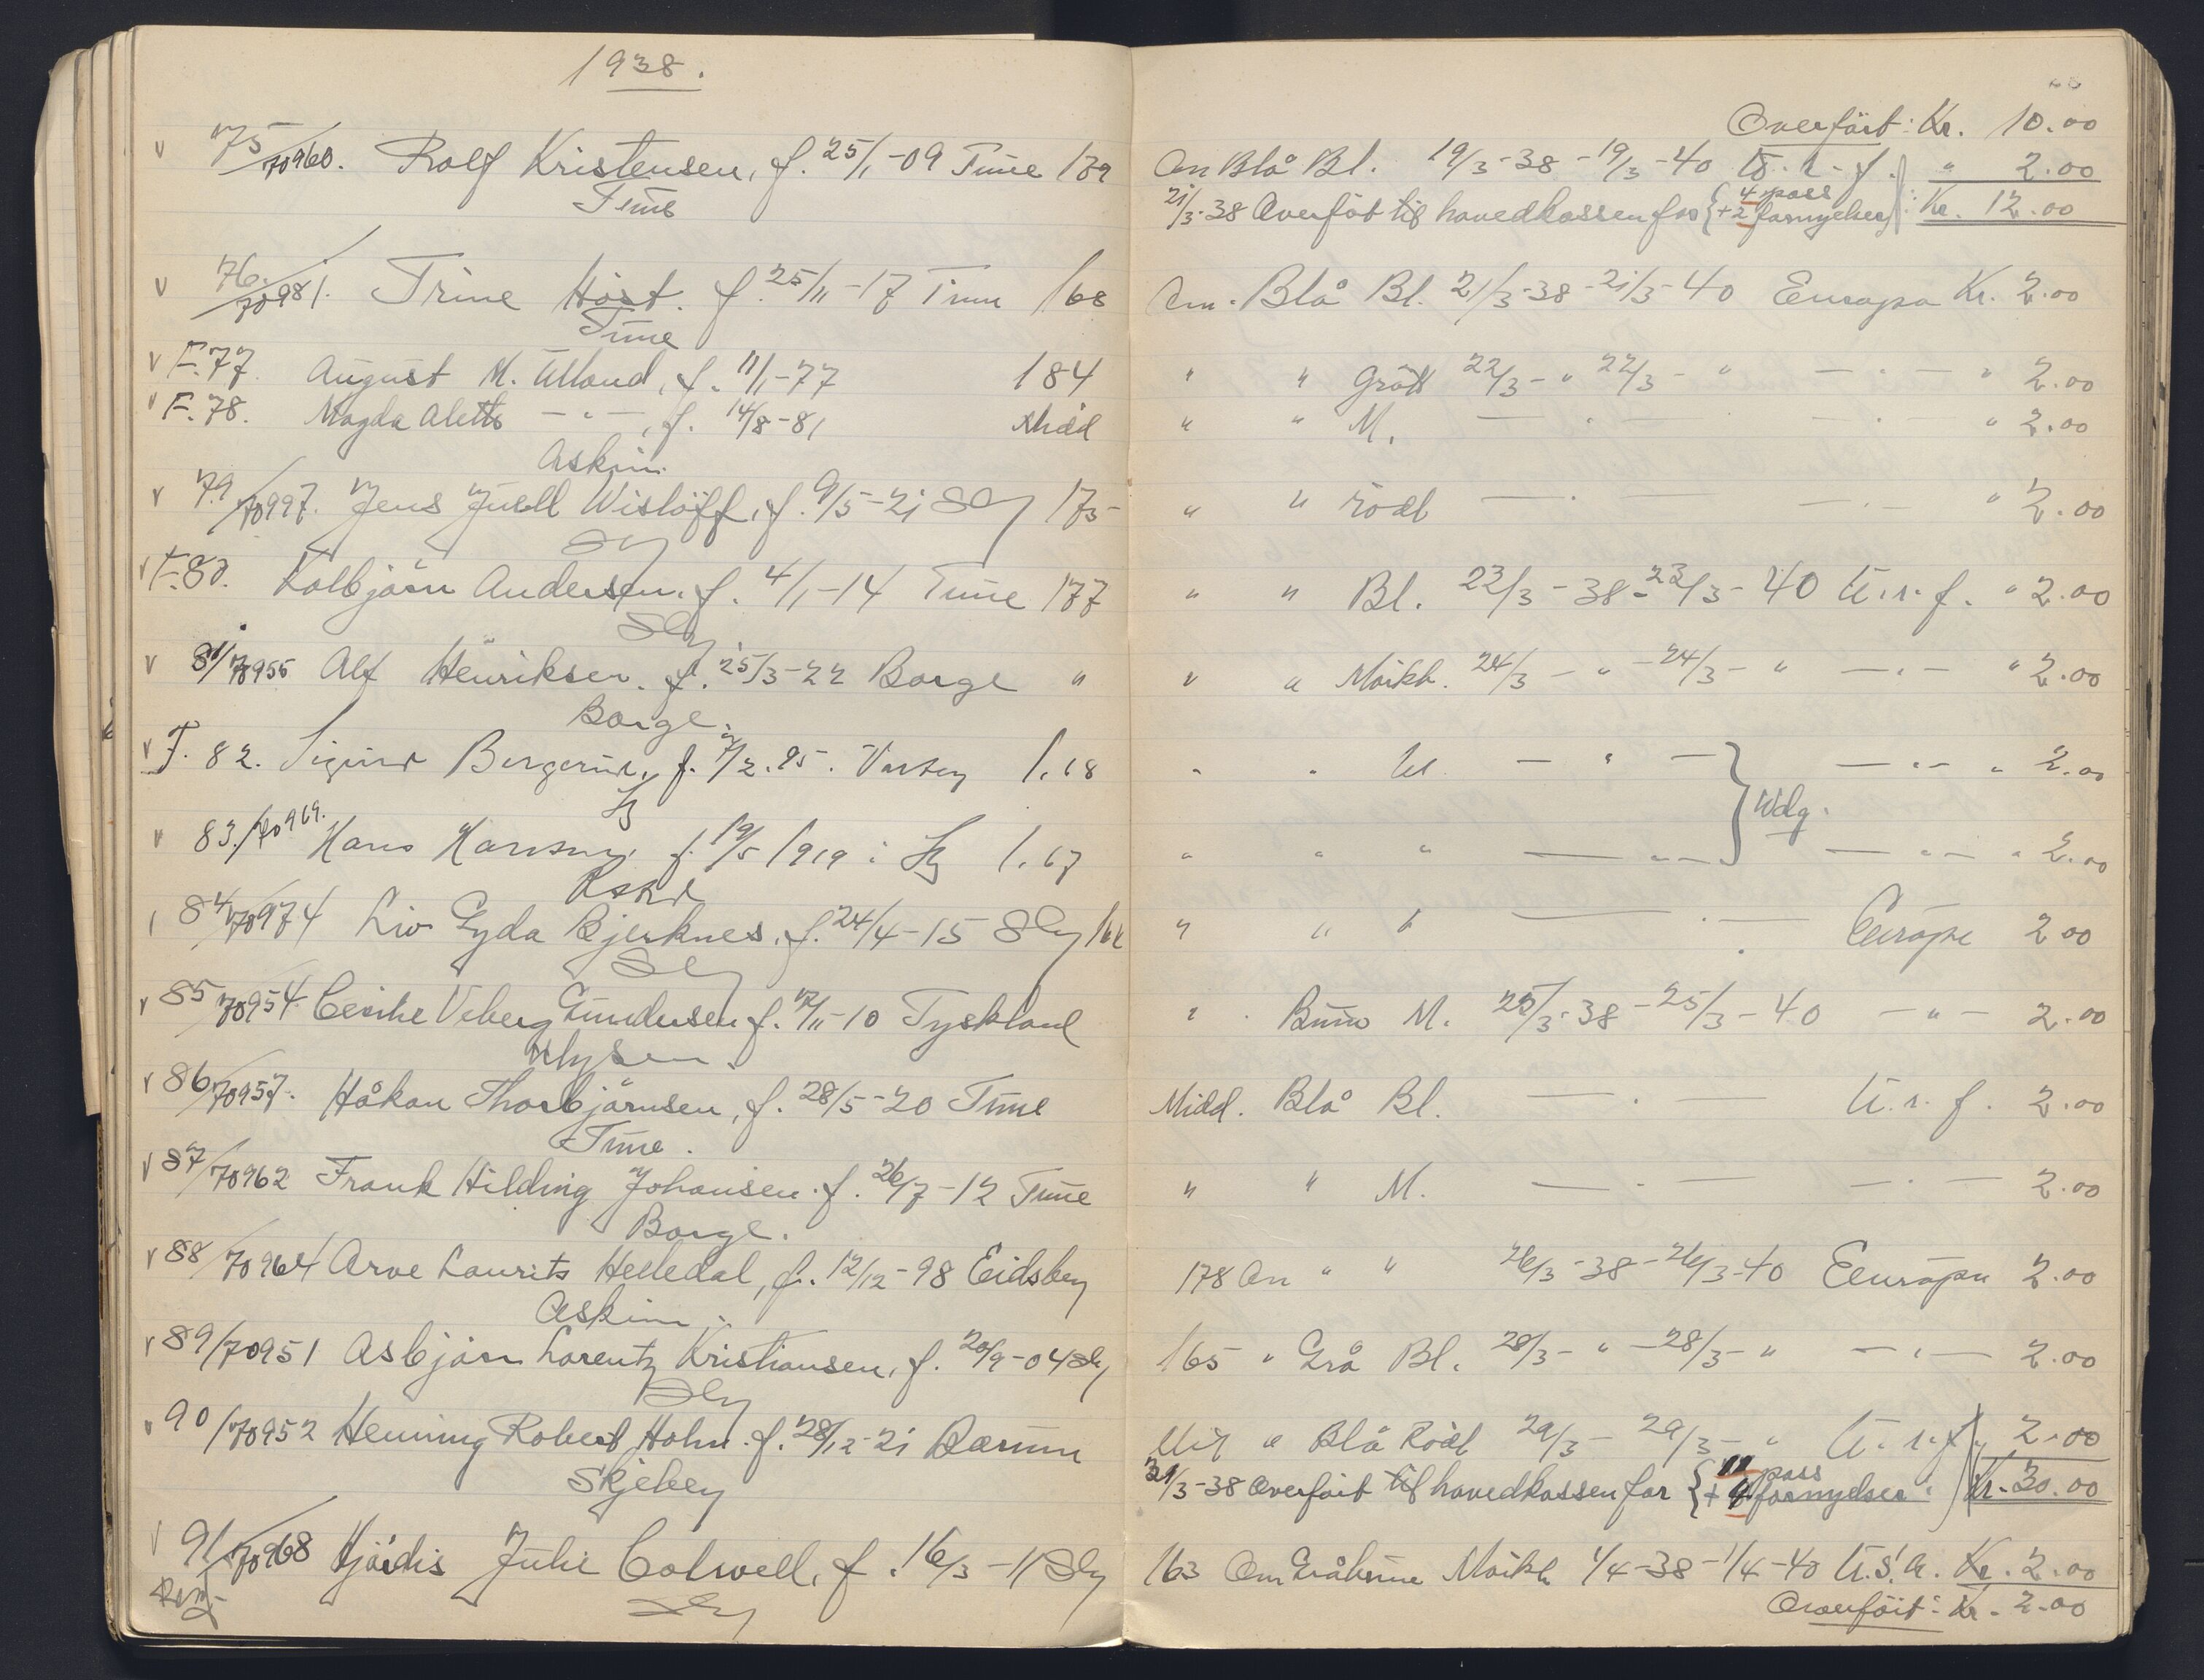 1938.
Overført: Kr. 10.00
v 75/70960. Rolf Kristensen, f. 25/1-09 Tune 189 Alm Blå Bl. 19/3-38-19/3-40 U.r.f. " 2.00
Tune 21/3-38 Overført til hovedkassen for {4 pass + 2 fornyelser} : Kr. 12.00
v 76./70981. Trine Høst. f. 25/11-17 Tune 168 Alm. Blå Bl. 21/3-38-21/3-40 Europa Kr. 2.00
Tune
v F.77. August M. Ulland, f. 11/1-77 184 " " Grått 22/3-"22/3-" — " — " 2.00
v F.78. Magda Aletta — " —, f. 14/8-81 Midd " " M. — " — — " — " 2.00
Askim.
v 79/70997. Jens Juell Wisløff, f. 9/5-21 Sbg 175 " " rödl — " — — " — " 2.00
Sbg
v F.80. Kolbjørn Andersen. f. 4/1-14 Tune 177 " " Bl. 23/3-38-23/3-40 U.r.f. " 2.00
Sbg
v 81/70955 Alf Henriksen. f. 25/3-22 Borge " " " Mörkbl. 24/3-"-24/3-" — " — " 2.00
Borge.
v F. 82. Sigurd Bergerud, f. 7/2.95. Varteig 1.68 " " bl — " — — " — " 2.00
Sbg } Wdg.
v 83./70969. Hans Hansen, f. 19/5 1919 i Sbg 1.67 " " " — " — — " — " 2.00
84/70974 Liv Gyda Bjerknes. f. 24/4-15 Sbg " " " — " — Europa 2 00
Sbg
v 85/70954 Veberg Gundersen f. 7/11-10 Tyskland " " Brun M. 25/3-38-25/3-40 — " — 2.00
v 86/70957. Håkon Thorbjørnsen, f. 28/5-20 Tune Midd. Blå Bl. — " — U.r.f. 2.00
Tune.
v 87/70962 Frank Hilding Johansen. f. 26/7-12 Tune " " M. — " — — " — 2.00
Borge.
v 88/70964 Arve Laurits Helledal, f. 12/12-98 Eidsberg 178 Alm " " 26/3-38-26/3-40 Europa 2.00
Askim.
v 89/70951 Asbjørn Lorentz Kristiansen, f. 20/9-04 Sbg 165 " Grå Bl. 28/3-"-28/3-" — " — 2.00
Sbg
v 90/70952 Henning Robert Holm. f. 28/12-21 Bærum " Blå Rödl 29/3-29/3-" U.r.f. 2.00
Skjeberg 31/3-38 Overført til hovedkassen for { 11 pass + 4 fornyelser : Kr. 30.00
v 91/70968 Hjørdis Julie Colwell, f. 16/3-11 Sbg 163 Alm Gråbrune Mörkbl 1/4-38-1/4-40 U.S.A. Kr. 2.00
Sbg Overført: Kr. 2.00